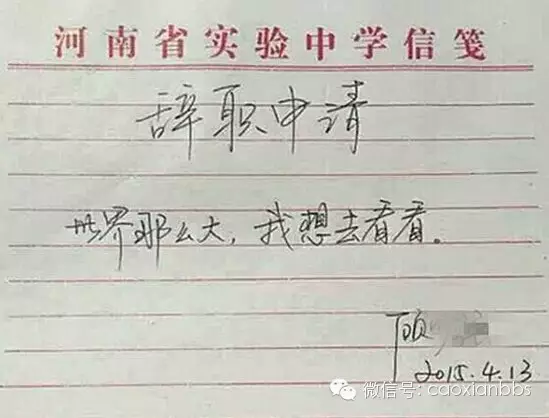 河南省实验中学信笺
辞职申请
世界那么大，我想去看看。
顾
2015.4.13
微信号: caoxianbbs